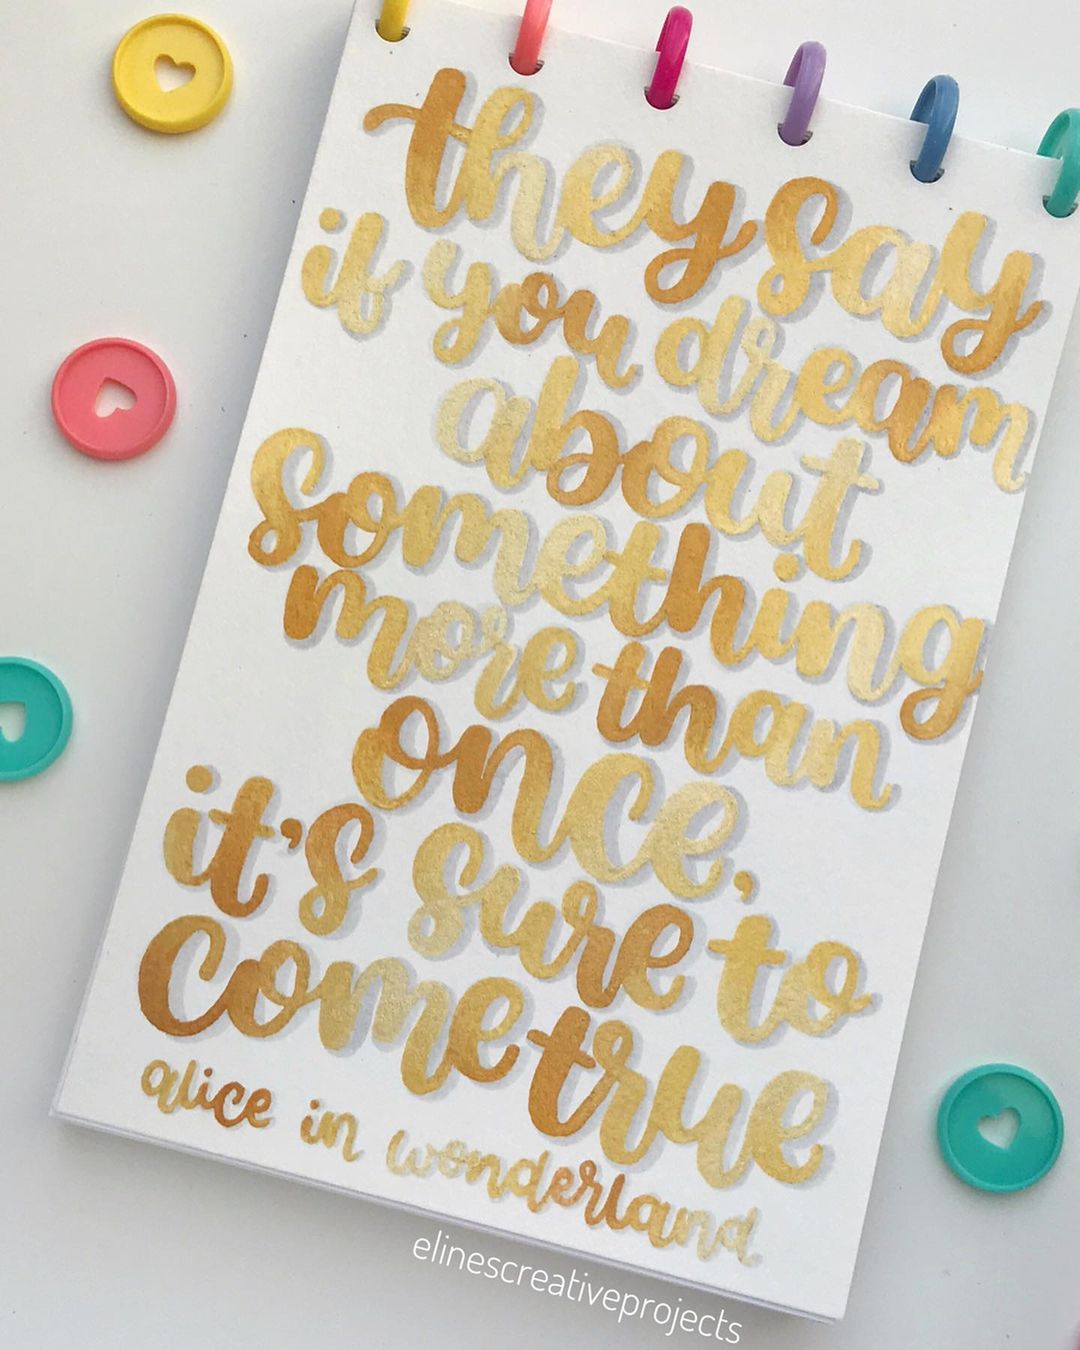 they say
if you dream
about
something
more than
once,
it's sure to
come true
alice in wonderland
elinescreativeprojects